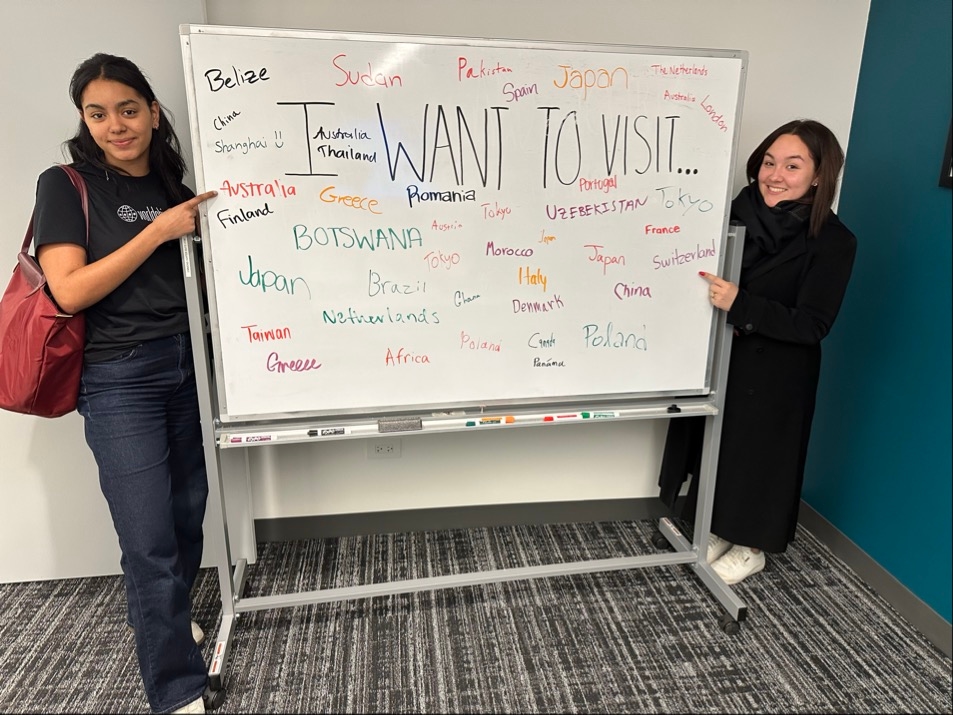 Belize
Sudan
Pakistan
Spain
Japan
The Netherlands
Australia
London
China
Shanghai
I WANT TO VISIT...
Australia
Thailand
Australia
Greece
Romania
Portugal
Tokyo
Finland
Tokyo
UZEBEKISTAN
BOTSWANA
Austria
France
Tokyo
Morocco
Japan
Japan
Switzerland
Japan
Brazil
Ghana
Italy
China
Netherlands
Denmark
Taiwan
Poland
Canada
Poland
Greece
Africa
Panama